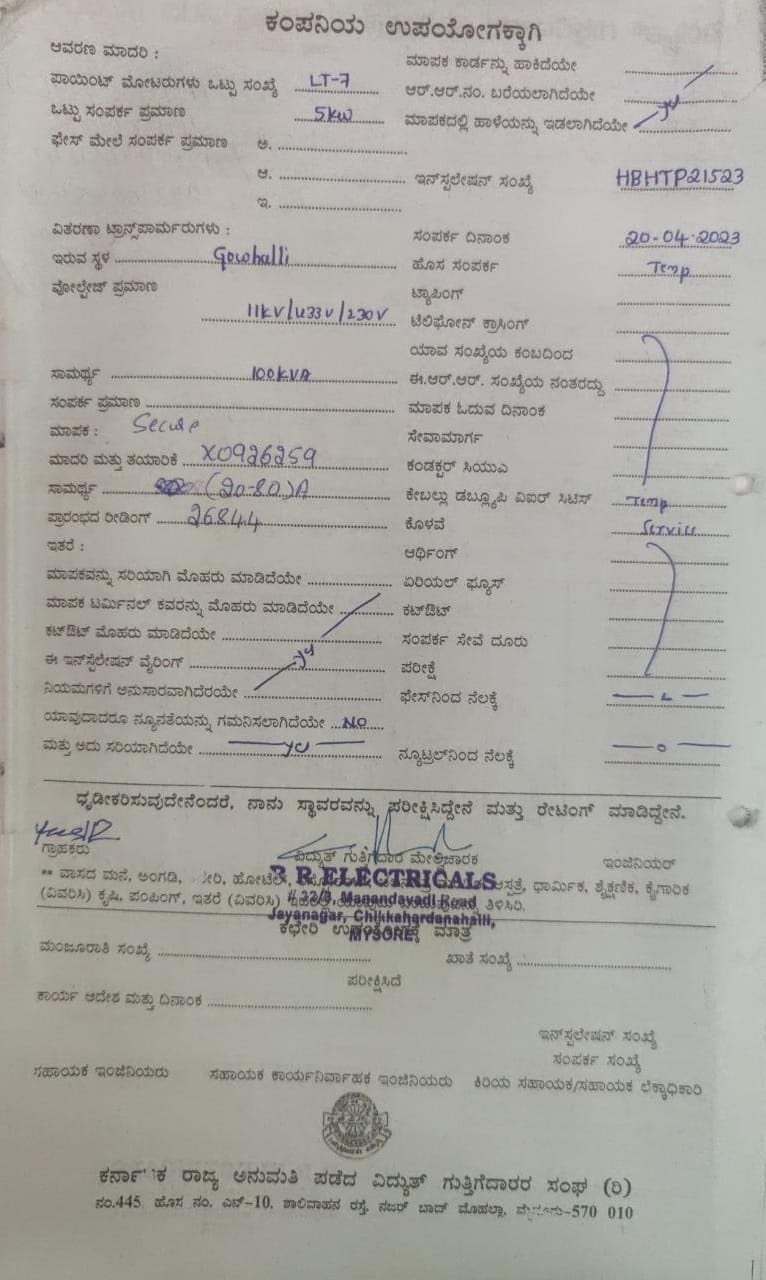 ಕಂಪನಿಯ ಉಪಯೋಗಕ್ಕಾಗಿ
ಆವರಣ ಮಾದರಿ :
ಮಾಪಕ ಕಾರ್ಡನ್ನು ಹಾಕಿದೆಯೇ
ಪಾಯಿಂಟ್ ಮೋಟರುಗಳು ಒಟ್ಟು ಸಂಖ್ಯೆ LT-7
ಆರ್.ಆರ್.ನಂ. ಬರೆಯಲಾಗಿದೆಯೇ
ಒಟ್ಟು ಸಂಪರ್ಕ ಪ್ರಮಾಣ 5kw
ಮಾಪಕದಲ್ಲಿ ಹಾಳೆಯನ್ನು ಇಡಲಾಗಿದೆಯೇ
ಫೇಸ್ ಮೇಲೆ ಸಂಪರ್ಕ ಪ್ರಮಾಣ ಅ.
ಆ.
ಇನ್‌ಸ್ಟಲೇಷನ್ ಸಂಖ್ಯೆ HBHTP21523
ಇ.
ವಿತರಣಾ ಟ್ರಾನ್ಸ್‌ಪಾರ್ಮರುಗಳು :
ಸಂಪರ್ಕ ದಿನಾಂಕ 20-04-2023
ಇರುವ ಸ್ಥಳ Gowhalli
ಹೊಸ ಸಂಪರ್ಕ Temp
ವೋಲ್ಟೇಜ್ ಪ್ರಮಾಣ
ಟ್ಯಾಪಿಂಗ್
11kV/433V/230V
ಟೆಲಿಫೋನ್ ಕ್ರಾಸಿಂಗ್
ಯಾವ ಸಂಖ್ಯೆಯ ಕಂಬದಿಂದ
ಸಾಮರ್ಥ್ಯ 100KVA
ಈ.ಆರ್.ಆರ್. ಸಂಖ್ಯೆಯ ನಂತರದ್ದು
ಸಂಪರ್ಕ ಪ್ರಮಾಣ
ಮಾಪಕ ಓದುವ ದಿನಾಂಕ
ಮಾಪಕ : Secure
ಸೇವಾಮಾರ್ಗ
ಮಾದರಿ ಮತ್ತು ತಯಾರಿಕೆ X0926259
ಕಂಡಕ್ಟರ್ ಸಿಯುಎ
ಸಾಮರ್ಥ್ಯ (20-80)A
ಕೇಬಲ್ಲು ಡಬ್ಲ್ಯೂಪಿ ವಿಐರ್ ಸಿಟಿಸ್ Temp
ಪ್ರಾರಂಭದ ರೀಡಿಂಗ್ 26844
ಕೊಳವೆ Service
ಇತರೆ :
ಆರ್ಥಿಂಗ್
ಮಾಪಕವನ್ನು ಸರಿಯಾಗಿ ಮೊಹರು ಮಾಡಿದೆಯೇ
ಏರಿಯಲ್ ಫ್ಯೂಸ್
ಮಾಪಕ ಟರ್ಮಿನಲ್ ಕವರನ್ನು ಮೊಹರು ಮಾಡಿದೆಯೇ
ಕಟ್‌ಔಟ್
ಕಟ್‌ಔಟ್ ಮೊಹರು ಮಾಡಿದೆಯೇ
ಸಂಪರ್ಕ ಸೇವೆ ದೂರು
ಈ ಇನ್‌ಸ್ಟೆಲೇಷನ್ ವೈರಿಂಗ್
ಪರೀಕ್ಷೆ
ನಿಯಮಗಳಿಗೆ ಅನುಸಾರವಾಗಿದೆರಯೇ
ಫೇಸ್‌ನಿಂದ ನೆಲಕ್ಕೆ
ಯಾವುದಾದರೂ ನ್ಯೂನತೆಯನ್ನು ಗಮನಿಸಲಾಗಿದೆಯೇ NO
ಮತ್ತು ಅದು ಸರಿಯಾಗಿದೆಯೇ
ನ್ಯೂಟ್ರಲ್‌ನಿಂದ ನೆಲಕ್ಕೆ — 0 —
ಧೃಡೀಕರಿಸುವುದೇನೆಂದರೆ, ನಾನು ಸ್ಥಾವರವನ್ನು ಪರೀಕ್ಷಿಸಿದ್ದೇನೆ ಮತ್ತು ರೇಟಿಂಗ್ ಮಾಡಿದ್ದೇನೆ.
ಗ್ರಾಹಕರು
ವಿದ್ಯುತ್ ಗುತ್ತಿಗೆದಾರ ಮೇಲ್ವಿಚಾರಕ
ಇಂಜಿನಿಯರ್
** ವಾಸದ ಮನೆ, ಅಂಗಡಿ, ಹೋಟೆಲ್, ಆಸ್ಪತ್ರೆ, ಧಾರ್ಮಿಕ, ಶೈಕ್ಷಣಿಕ, ಕೈಗಾರಿಕ
R ELECTRICALS
(ವಿವರಿಸಿ) ಕೃಷಿ, ಪಂಪಿಂಗ್, ಇತರೆ (ವಿವರಿಸಿ) ತಿಳಿಸಿರಿ.
Manandavadi Road
Jayanagar, Chikkahardanahalli,
MYSORE
ಕಛೇರಿ ಉಪಯೋಗಕ್ಕೆ ಮಾತ್ರ
ಮಂಜೂರಾತಿ ಸಂಖ್ಯೆ
ಖಾತೆ ಸಂಖ್ಯೆ
ಪರೀಕ್ಷಿಸಿದೆ
ಕಾರ್ಯ ಆದೇಶ ಮತ್ತು ದಿನಾಂಕ
ಇನ್‌ಸ್ಟಲೇಷನ್ ಸಂಖ್ಯೆ
ಸಂಪರ್ಕ ಸಂಖ್ಯೆ
ಸಹಾಯಕ ಇಂಜಿನಿಯರು ಸಹಾಯಕ ಕಾರ್ಯನಿರ್ವಾಹಕ ಇಂಜಿನಿಯರು ಕಿರಿಯ ಸಹಾಯಕ/ಸಹಾಯಕ ಲೆಕ್ಕಾಧಿಕಾರಿ
ರಾಜ್ಯ ಅನುಮತಿ ಪಡೆದ ವಿದ್ಯುತ್ ಗುತ್ತಿಗೆದಾರರ ಸಂಘ (ರಿ)
ನಂ.445, ಹೊಸ ನಂ. ಎನ್-10, ಶಾಲಿವಾಹನ ರಸ್ತೆ, ನಜರ್ ಬಾದ್ ಮೊಹಲ್ಲಾ, -570 010